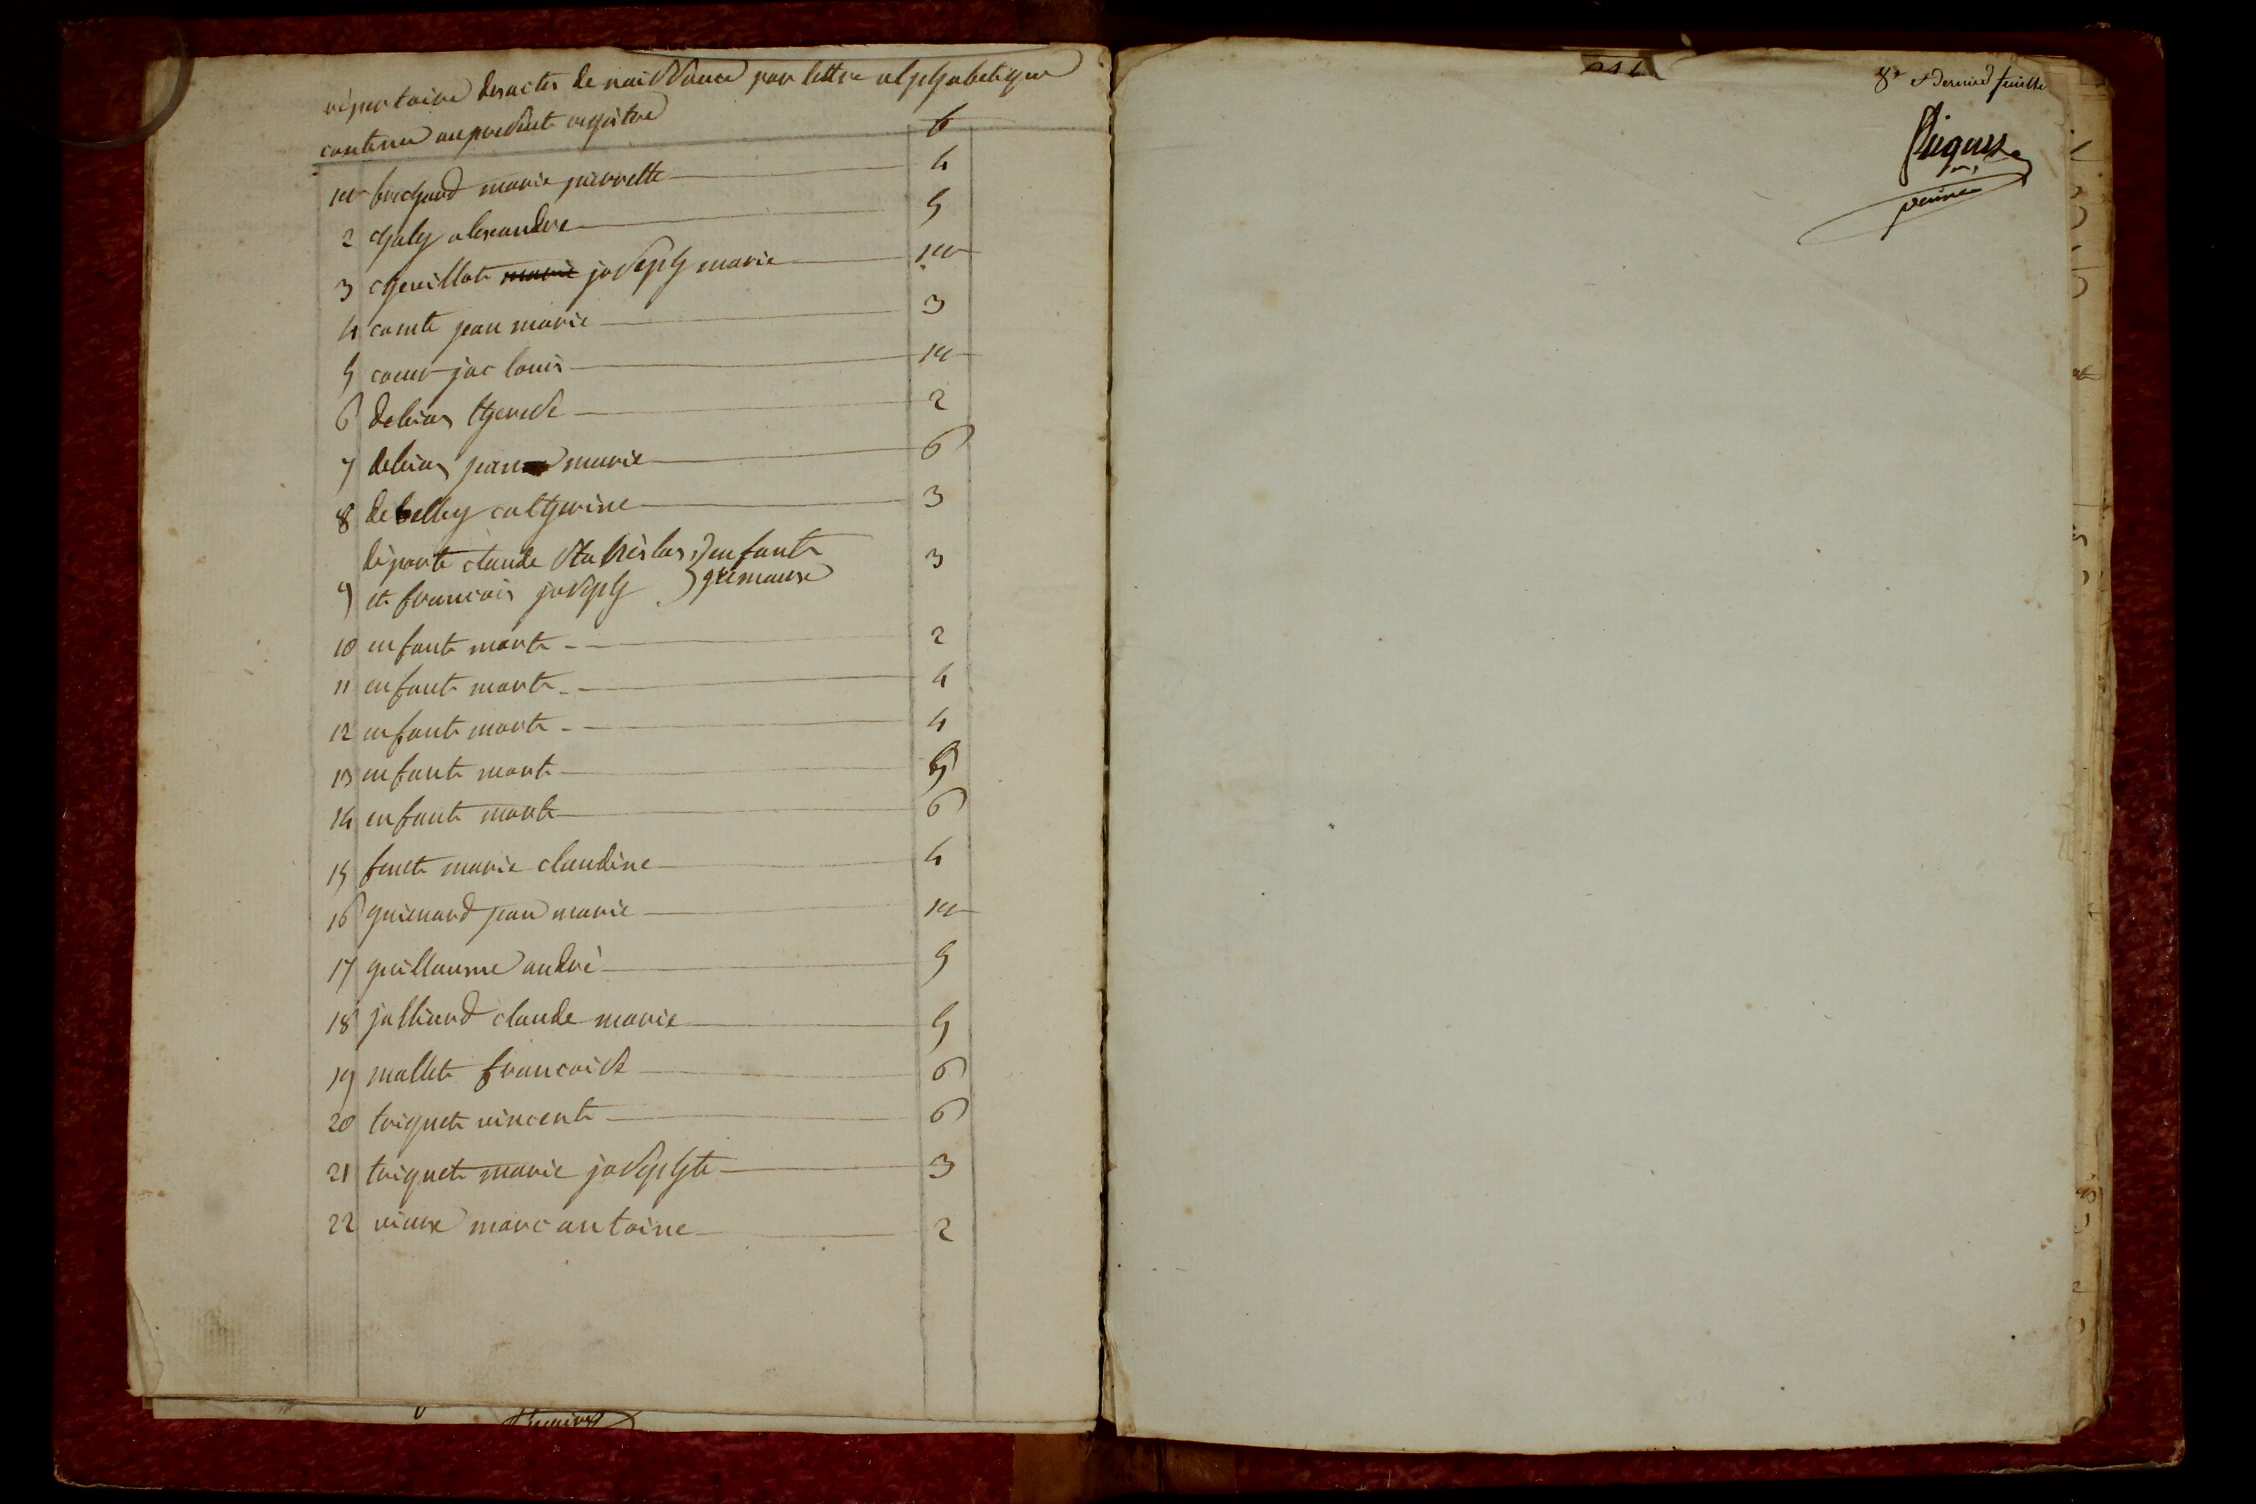 répertoire des actes de naissance par lettre alphabetique
contenu au present registre
6
1er brichard marie pierrette 4
2 chaly alexandre 5
3 chevillot marie joseph marie 1er
4 comte jean marie 3
5 coeur jac louis 1er
6 debias therese 2
7 debias jean marie 6
8 debelley catherine 3
déporte claude stanislas } enfants
9 et françois joseph } gémeaux 3
10 enfant mort 2
11 enfant mort 4
12 enfant mort 4
13 enfant mort 5
14 enfant mort 6
15 favet marie claudine 4
16 guienard jean marie 1er
17 guillaume andré 5
18 jalliard claude marie 5
19 mallet francoise 6
20 triquet vincent 6
21 triquet marie josephte 3
22 vieux marc antoine 2
8e et dernier feuille